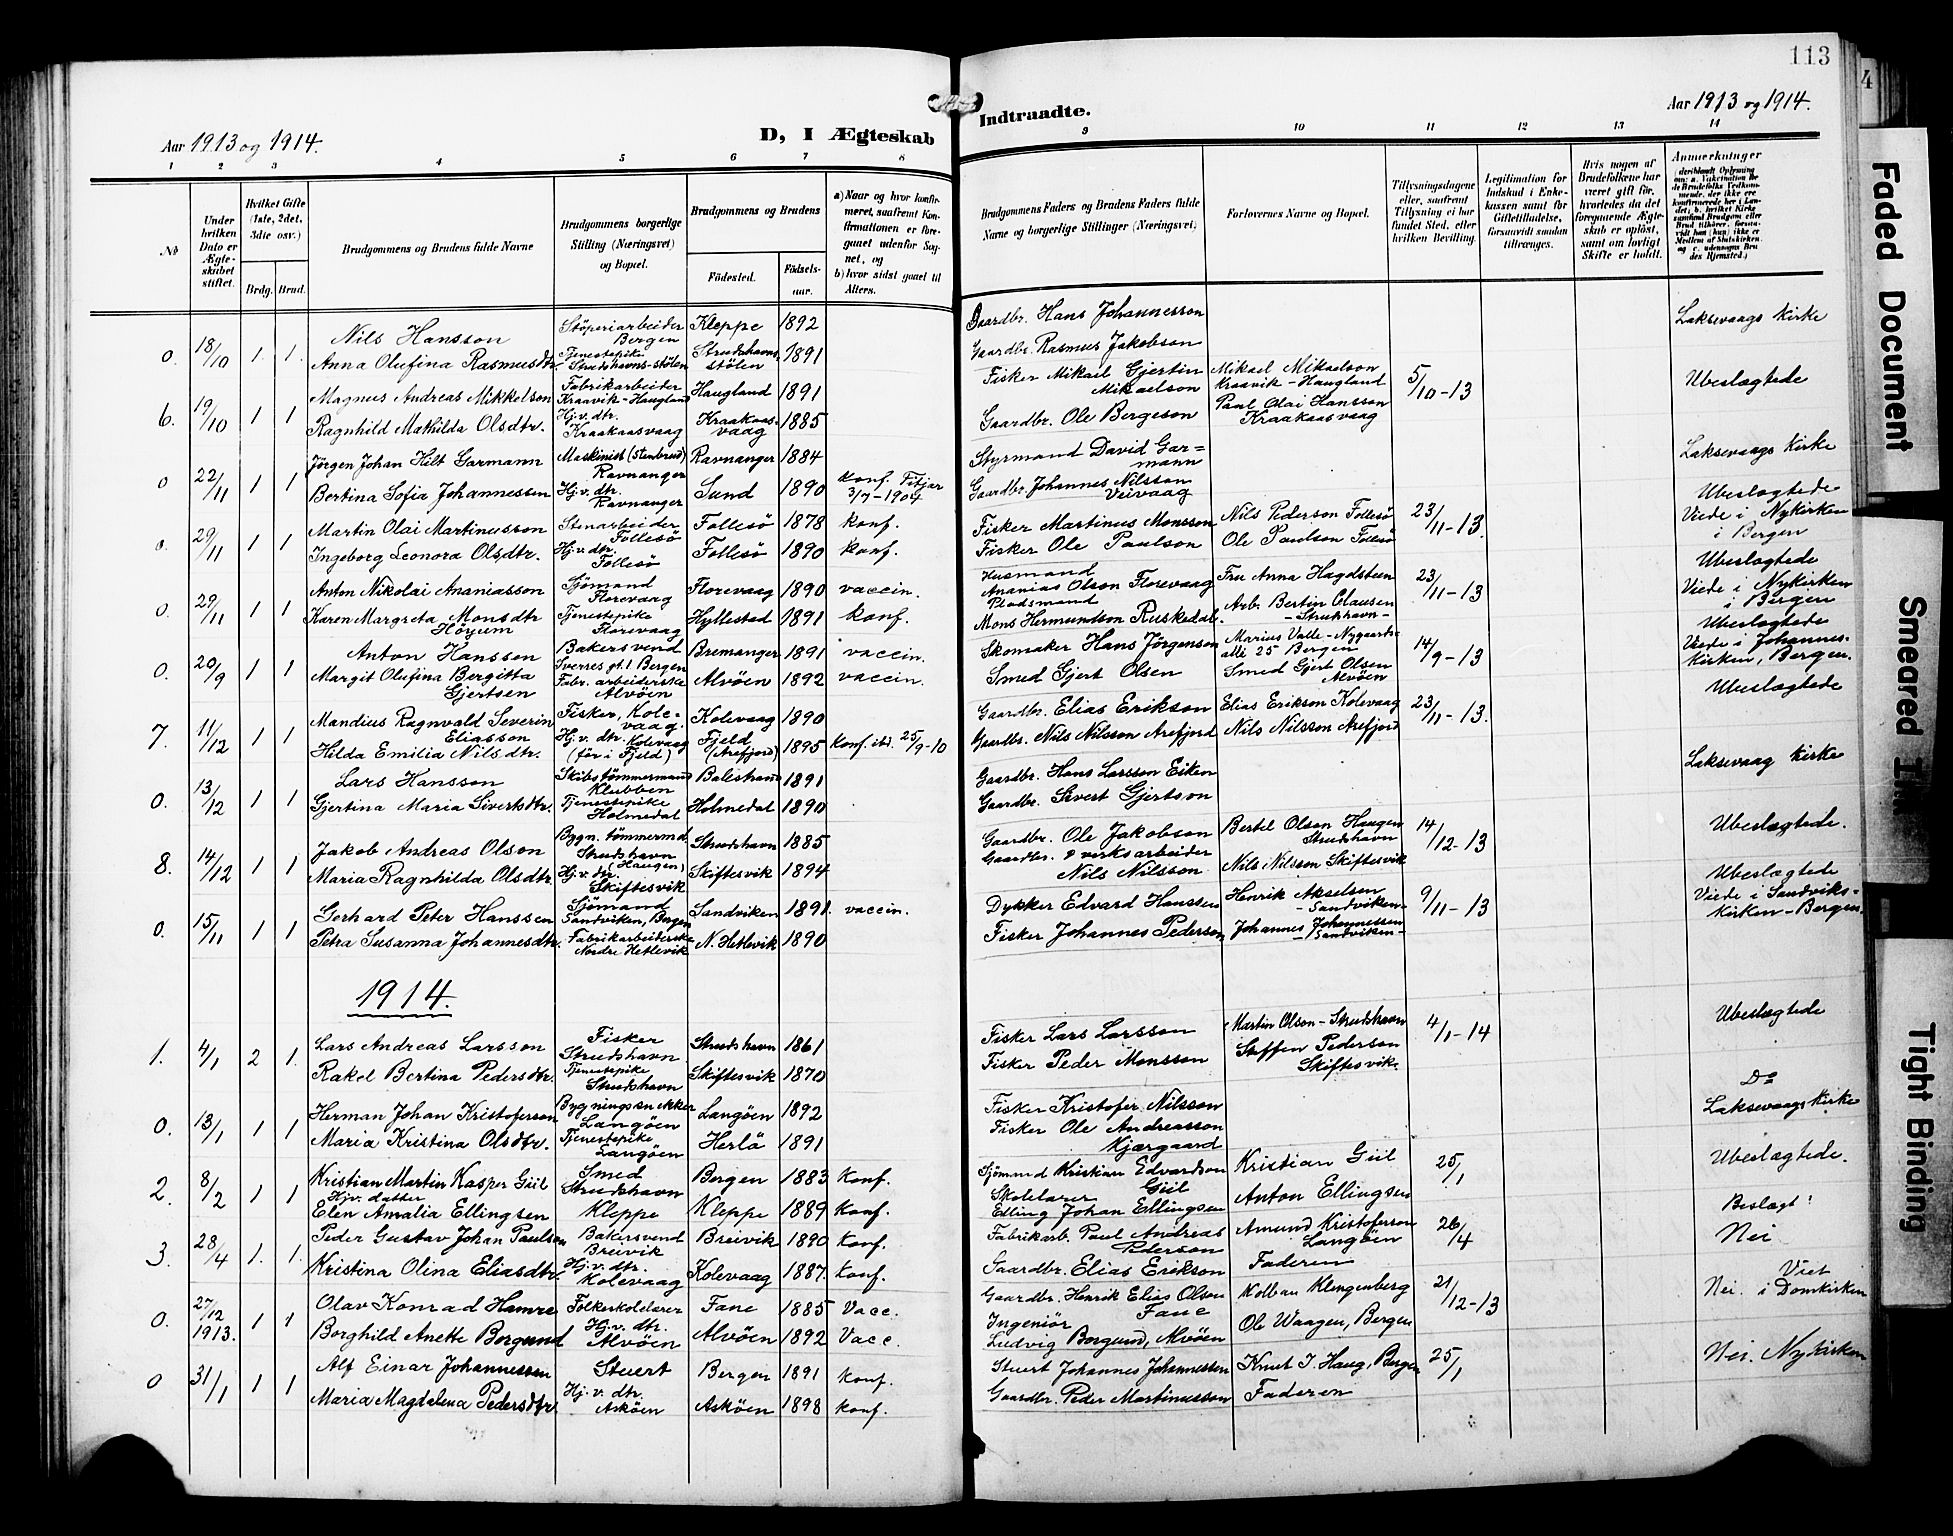 113
4
Aar 1913 og 1914.
D, I Ægteskab
Indtraadte.
Aar 1913 og 1914.
1 2 3 4 5 6 7 8
9 10 11 12 13 14
No
Under hvilken Dato er Ægteskabet stiftet.
Hvilket Gifte (1ste, 2det, 3die osv.)
Brdg. Brud.
Brudgommens og Brudens fulde Navne
Brudgommens borgerlige Stilling (Næringsvei) og Bopæl.
Brudgommens og Brudens
Födested.
Födselsaar.
a) Naar og hvor konfirmeret, saafremt Konfirmationen er foregaaet udenfor Sognet, og
b) hvor sidst gaaet til Alters.
Brudgommens Faders og Brudens Faders fulde Navne og borgerlige Stillinger (Næringsvei)
Forlovernes Navne og Bopæl.
Tillysningsdagene eller, saafremt Tillysning ei har fundet Sted, efter hvilken Bevilling.
Legitimation for Indskud i Enkekassen samt for Giftetilladelse, forsaavidt saadan tiltrænges.
Hvis nogen af Brudefolkene har været gift för, hvorledes da det foregaaende Ægteskab er oplöst, samt om lovligt Skifte er holdt.
Anmerkninger
0. 18/10 1. 1.
Nils Hansson Stöperiarbeider Bergen Kleppe 1892 Gaardbr. Hans Johannesson Laksevaags Kirke
Anna Olufina Rasmusdtr. Tjenestepike Strudshavns-stölen Strudshavns-stölen 1891 Gaardbr. Rasmus Jakobson
6. 19/10 1 1
Magnus Andreas Mikkelson Fabrikarbeider Kraavik-Haugland Haugland 1891 Fisker Mikael Gjertin Mikaelson Mikael Mikaelson Kraavik-Haugland 5/10-13 Ubeslægtede
Ragnhild Mathilda Olsdtr. Hj.v.dtr. Kraakaasvaag Kraakaasvaag 1885 Gaardbr. Ole Bergeson Paul Olai Hansson Kraakaasvaag
0 22/11 1 1
Jörgen Johan Hilt Garmann Maskinist (Stenbrud) Ravnanger Ravnanger 1884 Styrmand David Garmann Laksevaags Kirke
Bertina Sofia Johannessen Hj.v.dtr. Ravnanger Sund 1890 Konf. Fitjar 3/7-1904 Gaardbr. Johannes Nilsson Veivaag
0. 29/11 1 1
Martin Olai Martinusson Stenarbeider Follesö Follesö 1878 Konf. Fisker Martinus Monsson Nils Pederson Follesö 23/11-13. Ubeslægtede Viede i Nykirken i Bergen
Ingeborg Leonora Olsdtr. Hj.v.dtr. Follesö Follesö 1890 Konf. Fisker Ole Paulson Ole Paulson Follesö
0. 29/11 1 1
Anton Nikolai Ananiasson Sjömand Florevaag Florevaag 1890 vaccin. Husmand Ananias Olson Florevaag Fru Anna Hagdsteen 23/11-13 Ubeslægtede Viede i Nykirken i Bergen
Karen Margreta Monsdtr Höyum Tjenestepike Florevaag Hyllestad 1891 Konf. Pladsmand Mons Hermundson Ruskedal. Arb. Bertin Clausen - Strukhavn-
0. 20/9 1 1
Anton Hanssen Bakersvend Sverres gt. 1 Bergen Bremanger 1891 vaccin. Skomaker Hans Jörgenson Marius Valle-Nygaards-alle 25 Bergen 14/9-13 Ubeslægtede Viede i Johannes-kirken, Bergen.
Margit Olufina Bergitta Gjertsen Fabr. arbeiderske Alvöen Alvöen 1892 vaccin. Smed Gjert Olsen Smed Gjert Olsen Alvöen
7. 11/12 1 1
Mandius Ragnvald Severin Eliasson Fisker, Kolevaag. Kolevaag 1890 Gaardbr. Elias Erikson Elias Erikson Kolevaag 23/11-13. Ubeslægtede
Hilda Emilia Nilsdtr. Hj.v.dtr. Kolevaag (för i Fjeld) Fjeld (Arefjord) 1895 Konf. ibd. 25/9-10 Gaardbr. Nils Nilsson Arefjord Nils Nilsson Arefjord
0. 13/12 1 1
Lars Hansson Skibstömmermand Klubben Balestrand 1891 Gaardbr. Hans Larsson Eiken Laksevaag Kirke
Gjertina Maria Sivertsdtr. Tjenestepike Holmedal Holmedal 1890 Gaardbr. Sivert Gjertson
8. 14/12 1 1
Jakob Andreas Olson Bygn. tömmermd. Strudshavn (Haugen) Strudshavn 1885 Gaardbr. Ole Jakobson Bertel Olson Haugen Strudshavn 14/12-13 Ubeslægtede.
Maria Ragnhilda Olsdtr. Hj.v.dtr. Skiftesvik Skiftesvik 1894 Gaardbr. & virksarbeider Nils Nilsson Nils Nilsson Skiftesvik
0. 15/11 1 1
Gerhard Peter Hanssen Sjömand Sandviken, Bergen Sandviken 1891. vaccin. Dykker Edvard Hanssen Henrik Akselsen -Sandviken- 9/11-13 Ubeslægtede Viede i Sandviks-kirken-Bergen
Petra Susanna Johannesdtr. Fabrikarbeiderske Nordre Hetlevik N. Hetlevik 1890 Fisker Johannes Pederson Johannes Johannessen -Sandviken-
1914.
1. 4/1 2 1.
Lars Andreas Larsson Fisker Strudshavn Strudshavn 1861 Fisker Lars Larsson Martin Olson-Strudshavn 4/1-14 Ubeslægtede
Rakel Bertina Pedersdtr. Tjenestepike Strudshavn Skiftesvik 1870 Fisker Peder Monsson Steffen Pederson Skiftesvik
0. 13/1 1 1
Herman Johan Kristoferson Bygningssnekker Langöen Langöen 1892 Fisker Kristofer Nilsson Do Laksevaags Kirke
Maria Kristina Olsdtr. Tjenestepike Langöen Herlö 1891 Fisker Ole Andreasson Kjærgaard
2. 8/2 1 1
Kristian Martin Kasper Giil Smed Strudshavn Bergen 1883 Konf. Sjömand Kristian Edvardson Giil Kristian Giil 25/1 Ubeslægtede.
Hjv. datter Elen Amalia Ellingsen Kleppe Kleppe 1889 Konf. Skolelærer Elling Johan Ellingsen Anton Ellingsen Beslægt?
3. 28/4 1. 1.
Peder Gustav Johan Paulson Bakersvend Breivik Breivik 1890 Konf. Fabrikarb. Paul Andreas Pederson Amund Kristoferson Langöen 26/4 Nei
Kristina Olina Eliasdtr. Hj.v.dtr. Kolevaag Kolevaag 1887. Konf. Gaardbr. Elias Erikson Faderen
0. 27/12 1913. 1 1
Olav Konrad Hamre Folkeskolelærer Fane 1885 Vacc. Gaardbr. Henrik Elias Olson Fane Kolban Klengenberg 21/12-13 Nei. Viet i Domkirken
Borghild Anette Borgund Hj.v.dtr. Alvöen Alvöen 1892 Vacc. Ingeniör Ludvig Borgund, Alvöen Ole Waagen, Bergen
0 31/1 1 1
Alf Einar Johannessen Stuert Bergen 1891 Konf. Stuert Johannes Johannessen Knut I. Haug, Bergen 25/1 Nei. Nykirken
Maria Magdalena Pedersdtr. Hj.v.dtr. Asköen Asköen 1898 Konf. Gaardbr. Peder Martinusson Faderen
Faded Document
Smeared Ink
Tight Binding